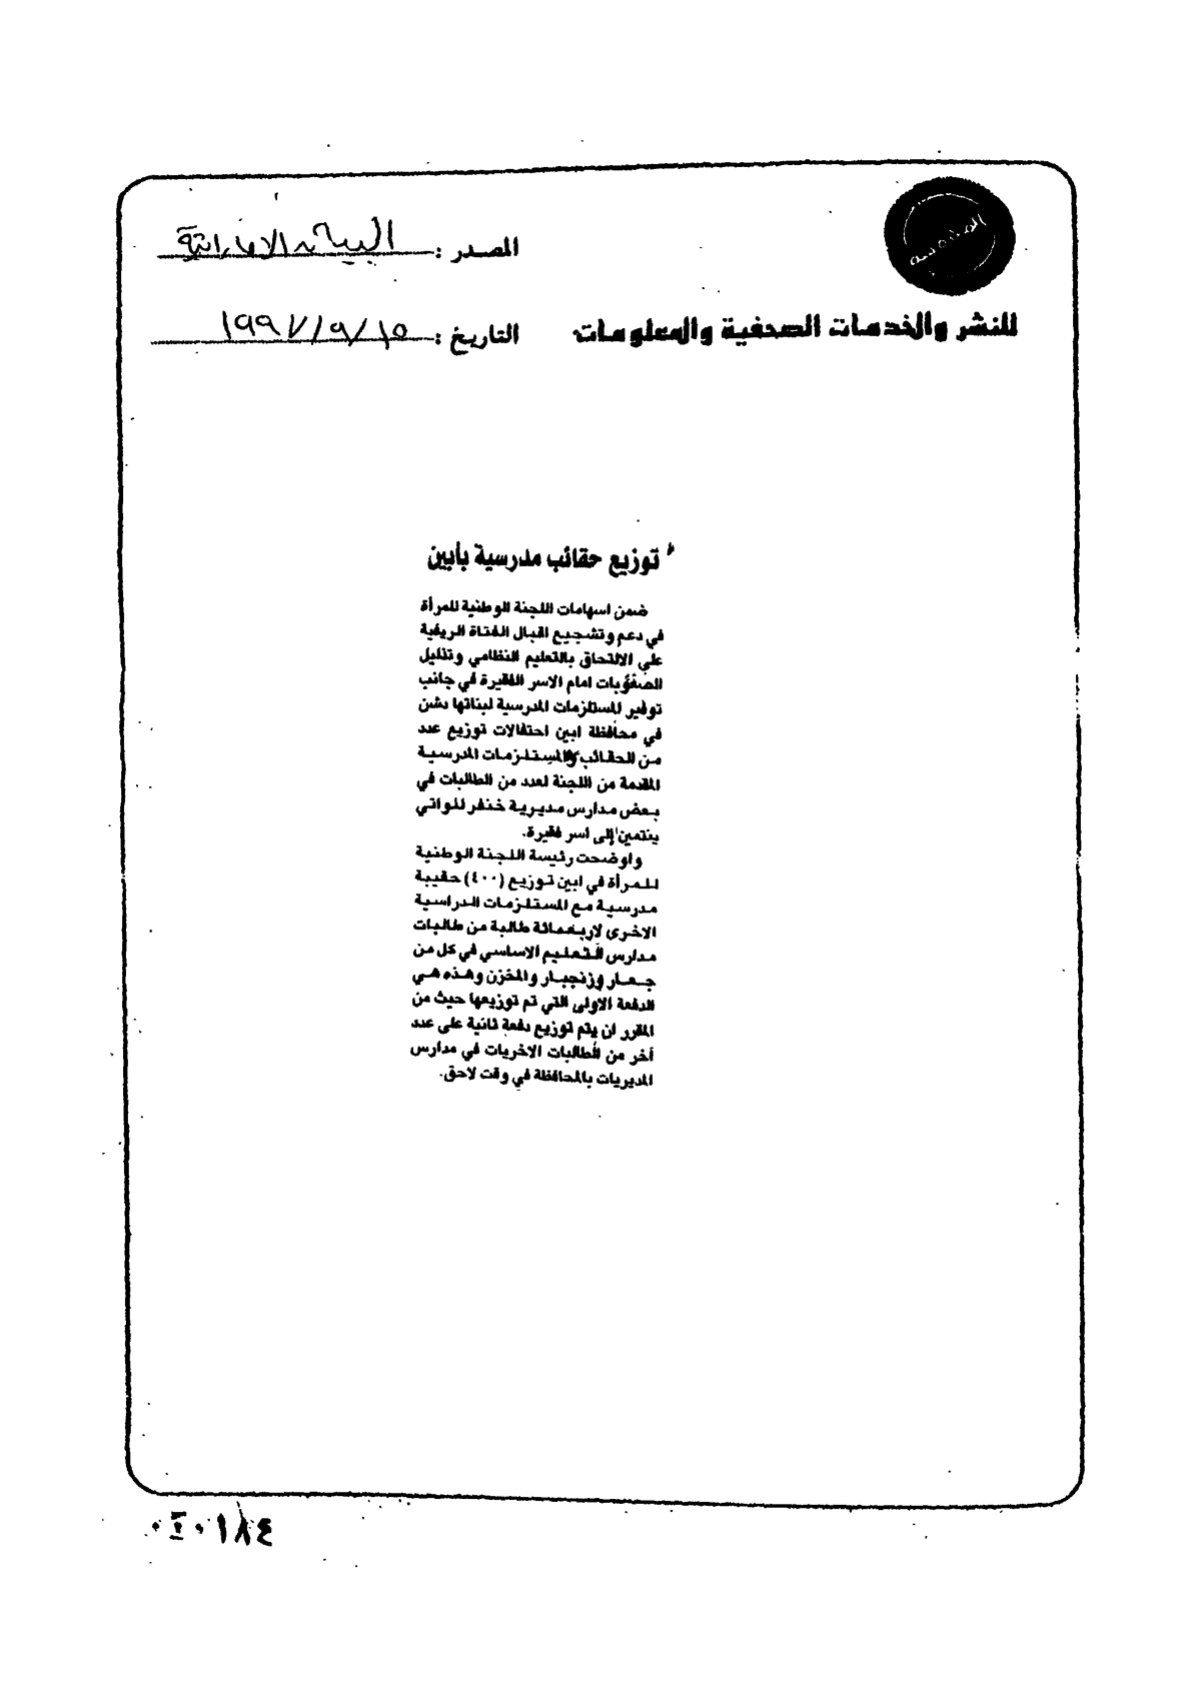 المصدر : البيان الاماراتية
للنشر والخدمات الصحفية والمعلومات
التاريخ : ١٩٩٧/٩/١٥
توزيع حقائب مدرسية بأبين
ضمن اسهامات اللجنة الوطنية للمرأة
في دعم وتشجيع اقبال الفتاة الريفية
على الالتحاق بالتعليم النظامي وتذليل
الصعوبات امام الاسر الفقيرة في جانب
توفير المستلزمات المدرسية لبناتها دشن
في محافظة ابين احتفالات توزيع عدد
من الحقائب والمستلزمات المدرسية
المقدمة من اللجنة لعدد من الطالبات في
بعض مدارس مديرية خنفر للواتي
ينتمين إلى اسر فقيرة.
واوضحت رئيسة اللجنة الوطنية
للمرأة في ابين توزيع (٤٠٠) حقيبة
مدرسية مع المستلزمات الدراسية
الاخرى لاربعمائة طالبة من طالبات
مدارس التعليم الاساسي في كل من
جعار وزنجبار والمخزن وهذه هي
الدفعة الاولى التي تم توزيعها حيث من
المقرر ان يتم توزيع دفعة ثانية على عدد
أخر من الطالبات الاخريات في مدارس
المديريات بالمحافظة في وقت لاحق.